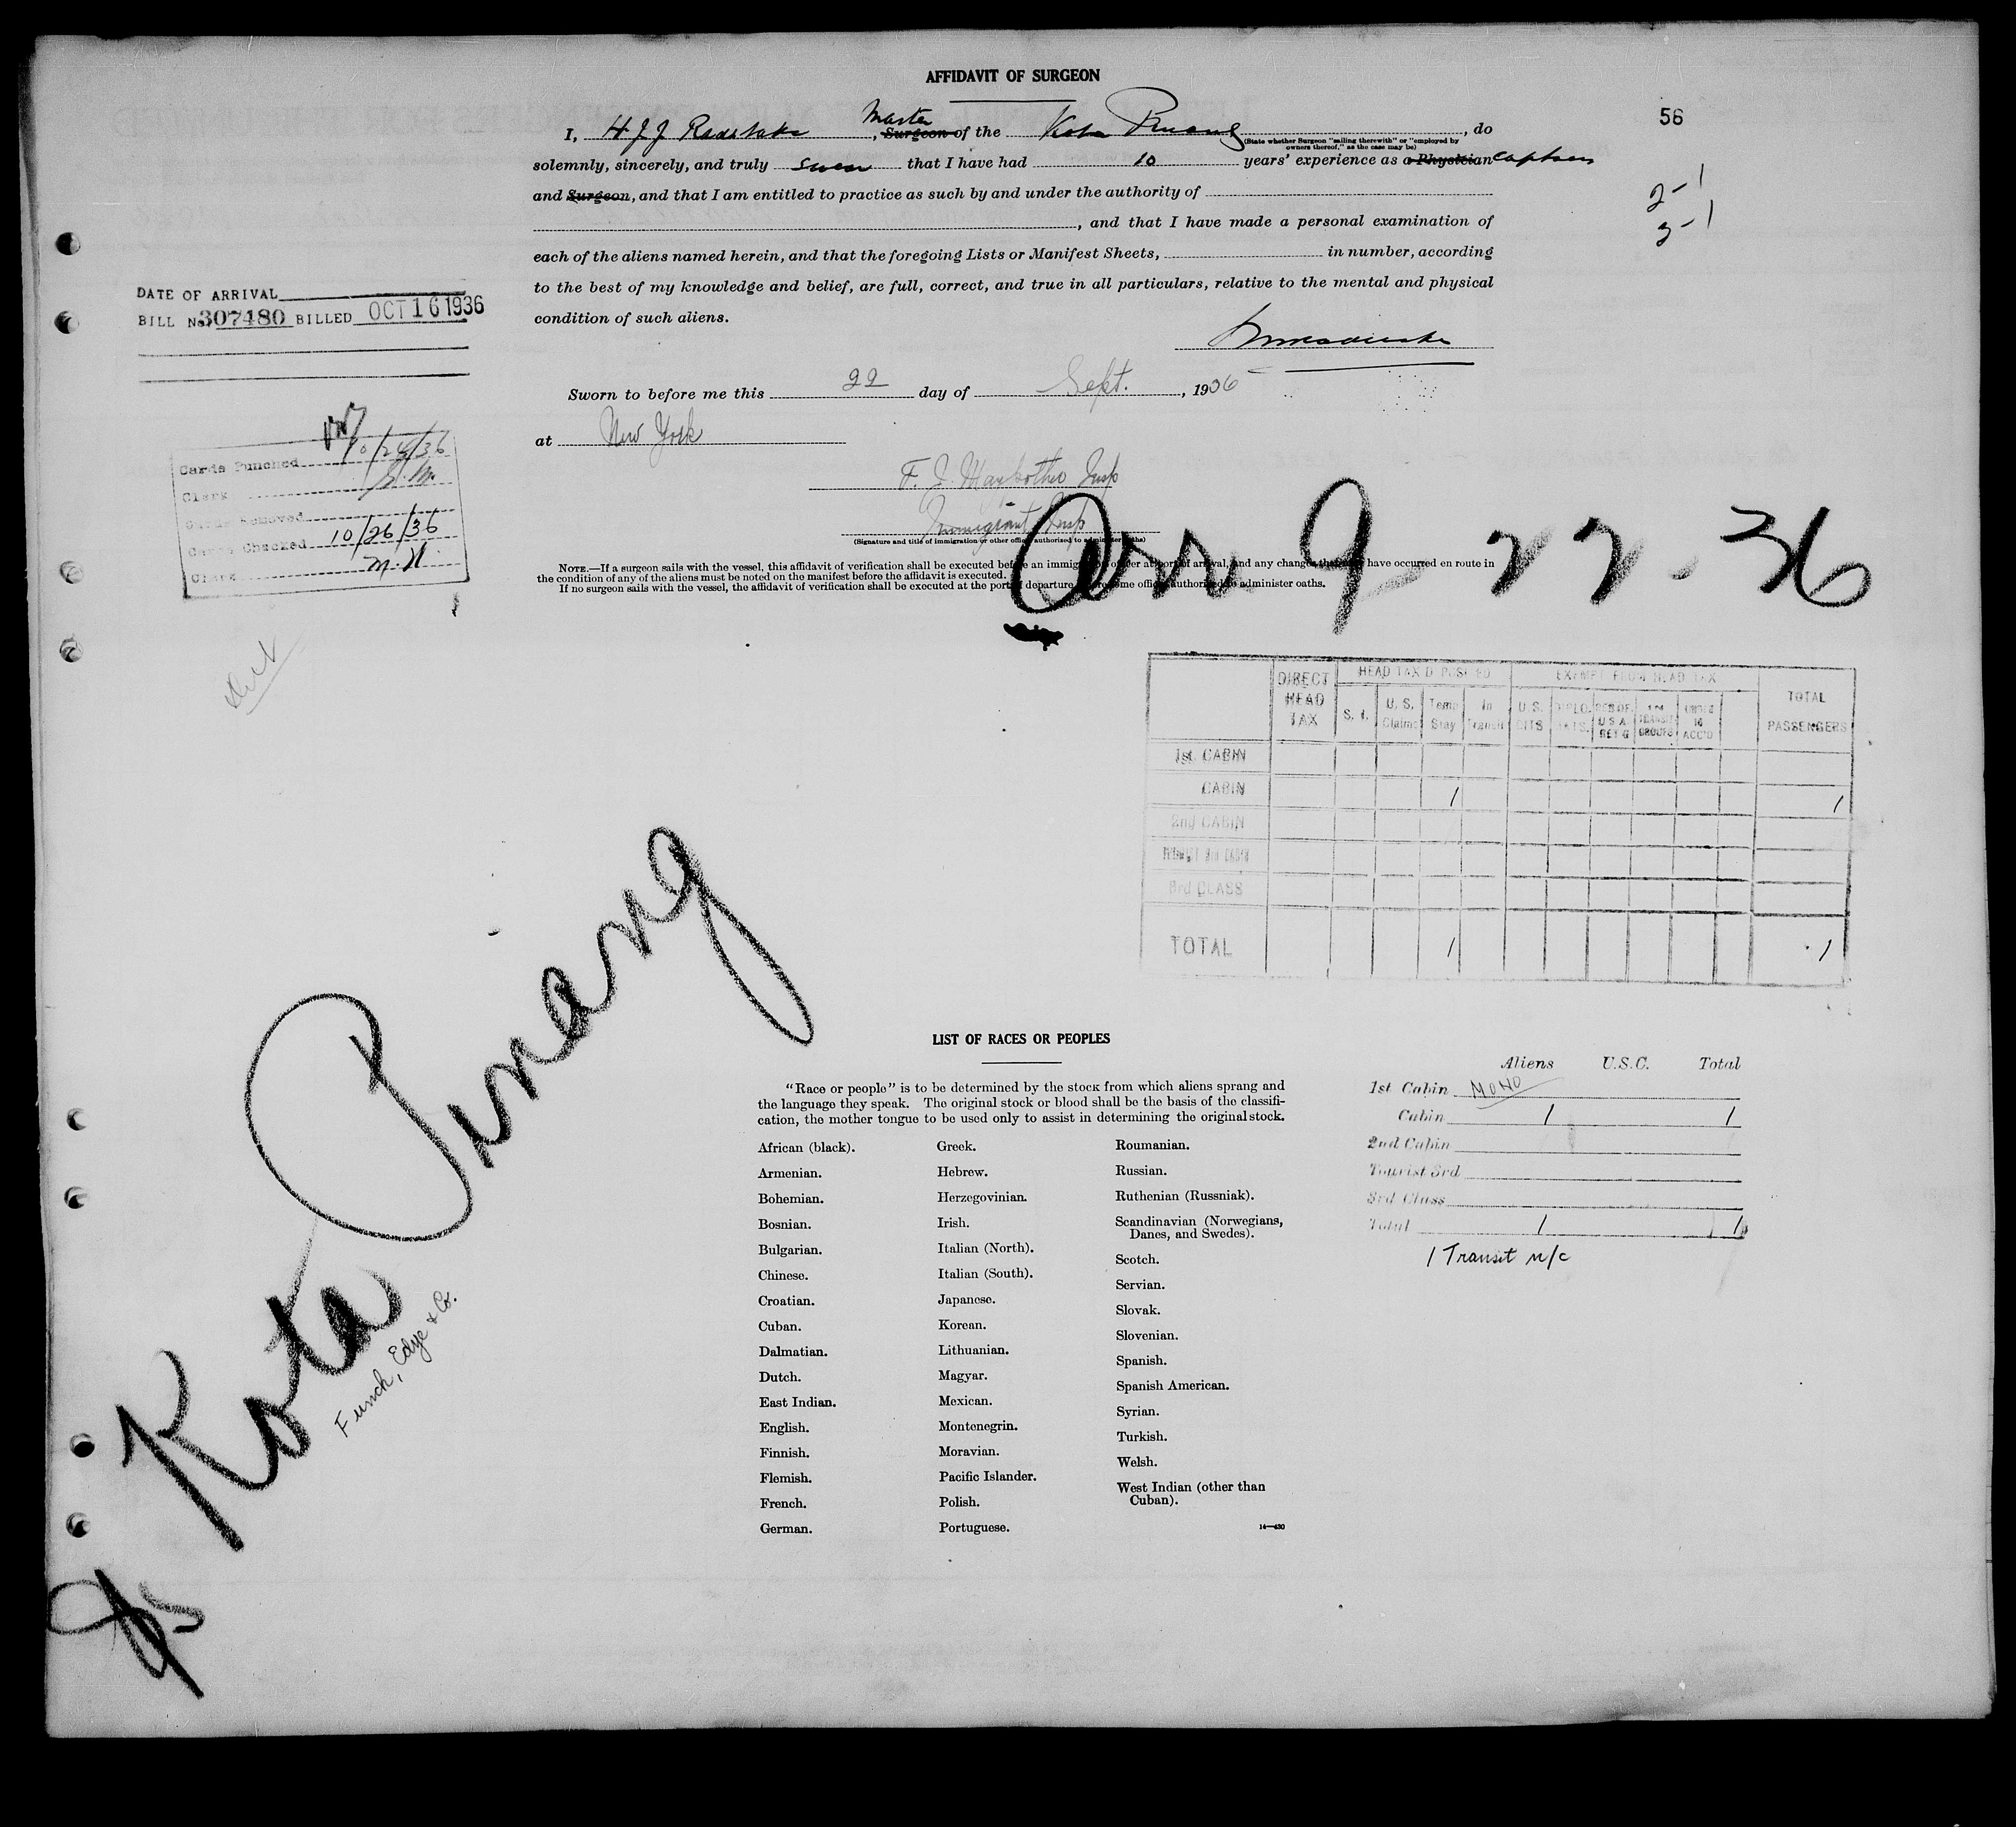 AFFIDAVIT OF SURGEON
56
I, H J J Radstake, Master Surgeon of the Kota Pinang, do
(State whether Surgeon "sailing therewith" or "employed by
owners thereof," as the case may be)
solemnly, sincerely, and truly swear that I have had 10 years' experience as a Physician Captain
and Surgeon, and that I am entitled to practice as such by and under the authority of
, and that I have made a personal examination of
each of the aliens named herein, and that the foregoing Lists or Manifest Sheets, in number, according
to the best of my knowledge and belief, are full, correct, and true in all particulars, relative to the mental and physical
condition of such aliens.
2-1
2-1
DATE OF ARRIVAL
BILL No. 307480 BILLED OCT 16 1936
Sworn to before me this 22 day of Sept., 1936
at New York
Immigrant Insp
(Signature and title of immigration or other officer authorized to administer oaths)
Cards Punched 10/24/36
Clerk
Cards Removed
Cards Checked 10/26/36
Clerk M.H.
Arr. 9-22-36
NOTE.—If a surgeon sails with the vessel, this affidavit of verification shall be executed before an immigration officer at port of arrival, and any changes that may have occurred en route in
the condition of any of the aliens must be noted on the manifest before the affidavit is executed.
If no surgeon sails with the vessel, the affidavit of verification shall be executed at the port of departure before some officer authorized to administer oaths.
DIRECT HEAD TAX
HEAD TAX DEPOSITED
EXEMPT FROM HEAD TAX
TOTAL PASSENGERS
S. I.
U. S. Claims
Temp Stay
In Transit
U.S. CITS
DIPLO. MATS.
RES OF. U S A RET'G
TRANSIT GROUPS
UNDER 16 ACC'D
1st CABIN
CABIN 1 1
2nd CABIN
3rd CLASS
TOTAL 1 1
Kota Pinang
Funch, Edye & Co.
LIST OF RACES OR PEOPLES
"Race or people" is to be determined by the stock from which aliens sprang and
the language they speak. The original stock or blood shall be the basis of the classifi-
cation, the mother tongue to be used only to assist in determining the original stock.
African (black).
Armenian.
Bohemian.
Bosnian.
Bulgarian.
Chinese.
Croatian.
Cuban.
Dalmatian.
Dutch.
East Indian.
English.
Finnish.
Flemish.
French.
German.
Greek.
Hebrew.
Herzegovinian.
Irish.
Italian (North).
Italian (South).
Japanese.
Korean.
Lithuanian.
Magyar.
Mexican.
Montenegrin.
Moravian.
Pacific Islander.
Polish.
Portuguese.
Roumanian.
Russian.
Ruthenian (Russniak).
Scandinavian (Norwegians,
Danes, and Swedes).
Scotch.
Servian.
Slovak.
Slovenian.
Spanish.
Spanish American.
Syrian.
Turkish.
Welsh.
West Indian (other than
Cuban).
14—430
Aliens U.S.C. Total
1st Cabin
Cabin 1 1
2nd Cabin
Tourist 3rd
3rd Class
Total 1 1
1 Transit n/c